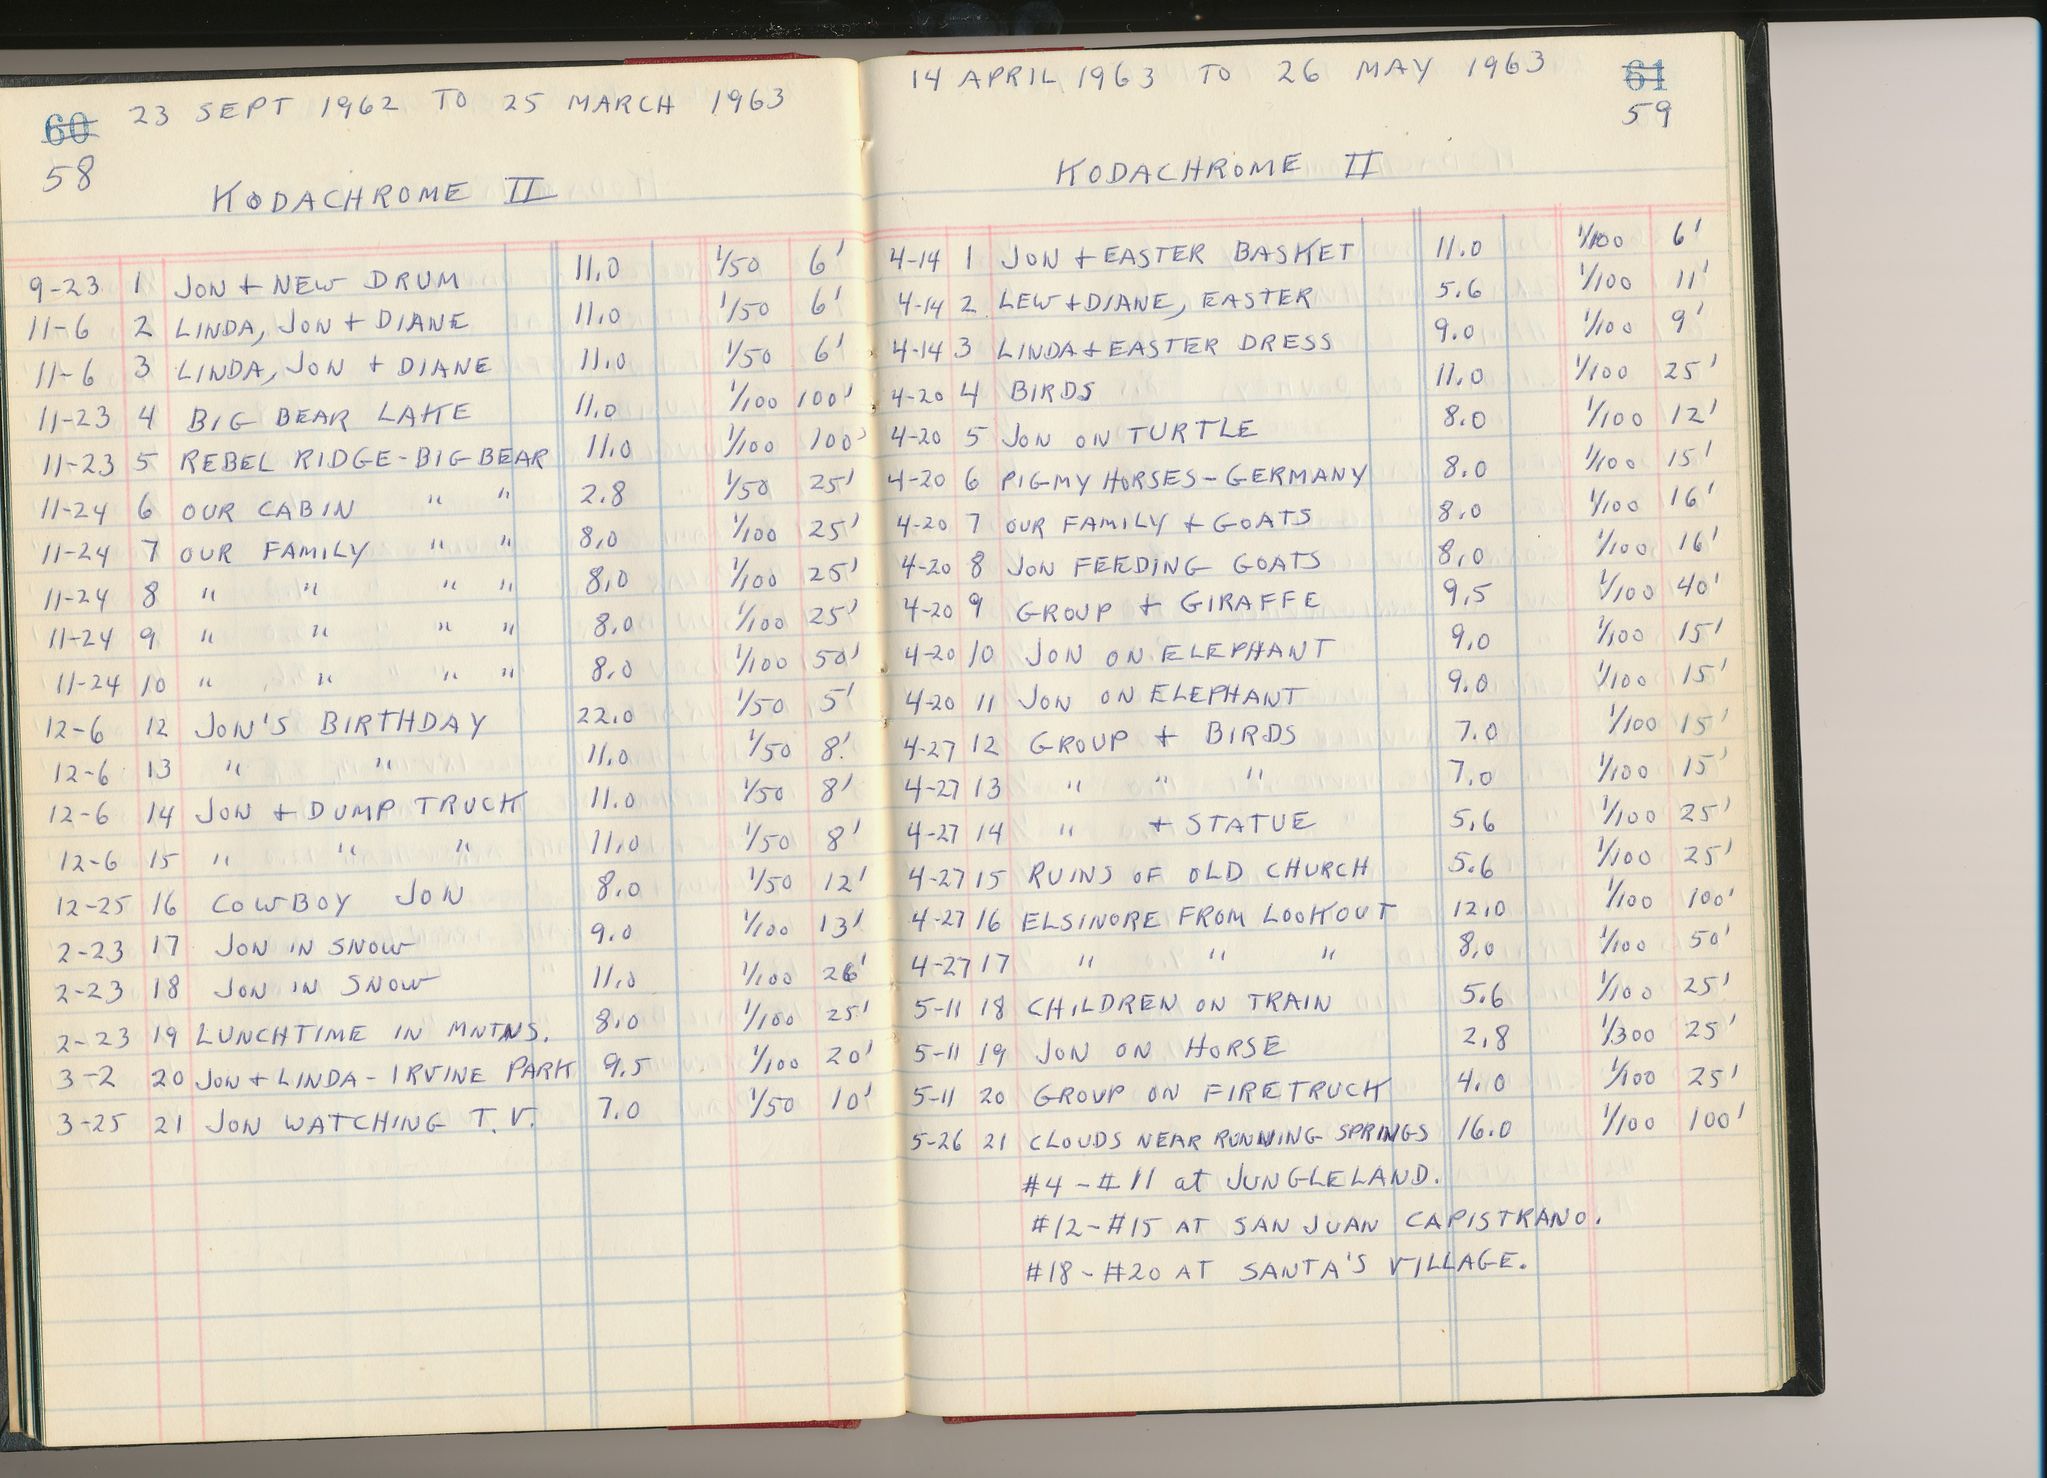 23 SEPT 1962 TO 25 MARCH 1963
60
58
KODACHROME II
9-23 1 JON + NEW DRUM 11.0 1/50 6'
11-6 2 LINDA, JON + DIANE 11.0 1/50 6'
11-6 3 LINDA, JON + DIANE 11.0 1/50 6'
11-23 4 BIG BEAR LAKE 11.0 1/100 100'
11-23 5 REBEL RIDGE-BIG BEAR 11.0 1/100 100'
11-24 6 OUR CABIN " " 2.8 1/50 25'
11-24 7 OUR FAMILY " " 8.0 1/100 25'
11-24 8 " " " " 8.0 1/100 25'
11-24 9 " " " " 8.0 1/100 25'
11-24 10 " " " " 8.0 1/100 50'
12-6 12 JON'S BIRTHDAY 22.0 1/50 5'
12-6 13 " " 11.0 1/50 8'
12-6 14 JON + DUMP TRUCK 11.0 1/50 8'
12-6 15 " " " 11.0 1/50 8'
12-25 16 COWBOY JON 8.0 1/50 12'
2-23 17 JON IN SNOW 9.0 1/100 13'
2-23 18 JON IN SNOW 11.0 1/100 26'
2-23 19 LUNCHTIME IN MNTNS. 8.0 1/100 25'
3-2 20 JON + LINDA - IRVINE PARK 9.5 1/100 20'
3-25 21 JON WATCHING T.V. 7.0 1/50 10'
14 APRIL 1963 TO 26 MAY 1963
61
59
KODACHROME II
4-14 1 JON + EASTER BASKET 11.0 1/100 6'
4-14 2 LEW + DIANE, EASTER 5.6 1/100 11'
4-14 3 LINDA + EASTER DRESS 9.0 1/100 9'
4-20 4 BIRDS 11.0 1/100 25'
4-20 5 JON ON TURTLE 8.0 1/100 12'
4-20 6 PIGMY HORSES - GERMANY 8.0 1/100 15'
4-20 7 OUR FAMILY + GOATS 8.0 1/100 16'
4-20 8 JON FEEDING GOATS 8.0 1/100 16'
4-20 9 GROUP + GIRAFFE 9.5 1/100 40'
4-20 10 JON ON ELEPHANT 9.0 1/100 15'
4-20 11 JON ON ELEPHANT 9.0 1/100 15'
4-27 12 GROUP + BIRDS 7.0 1/100 15'
4-27 13 " " " 7.0 1/100 15'
4-27 14 " + STATUE 5.6 1/100 25'
4-27 15 RUINS OF OLD CHURCH 5.6 1/100 25'
4-27 16 ELSINORE FROM LOOKOUT 12.0 1/100 100'
4-27 17 " " " 8.0 1/100 50'
5-11 18 CHILDREN ON TRAIN 5.6 1/100 25'
5-11 19 JON ON HORSE 2.8 1/300 25'
5-11 20 GROUP ON FIRETRUCK 4.0 1/100 25'
5-26 21 CLOUDS NEAR RUNNING SPRINGS 16.0 1/100 100'
#4 - #11 at JUNGLELAND.
#12 - #15 AT SAN JUAN CAPISTRANO.
#18 - #20 AT SANTA'S VILLAGE.